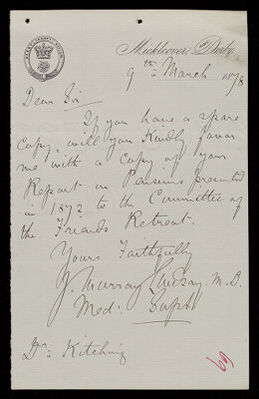 Mickleover, Derby
9th March 1878
Dear Sir
If you have a spare
Copy, will you Kindly favor
me with a copy of your
Report on Pensions presented
in 1872 to the Committee of
the Friends Retreat.
Yours Faithfully
J. Murray Lindsay. M.D.
Med: Supt
Dr. Kitching
69